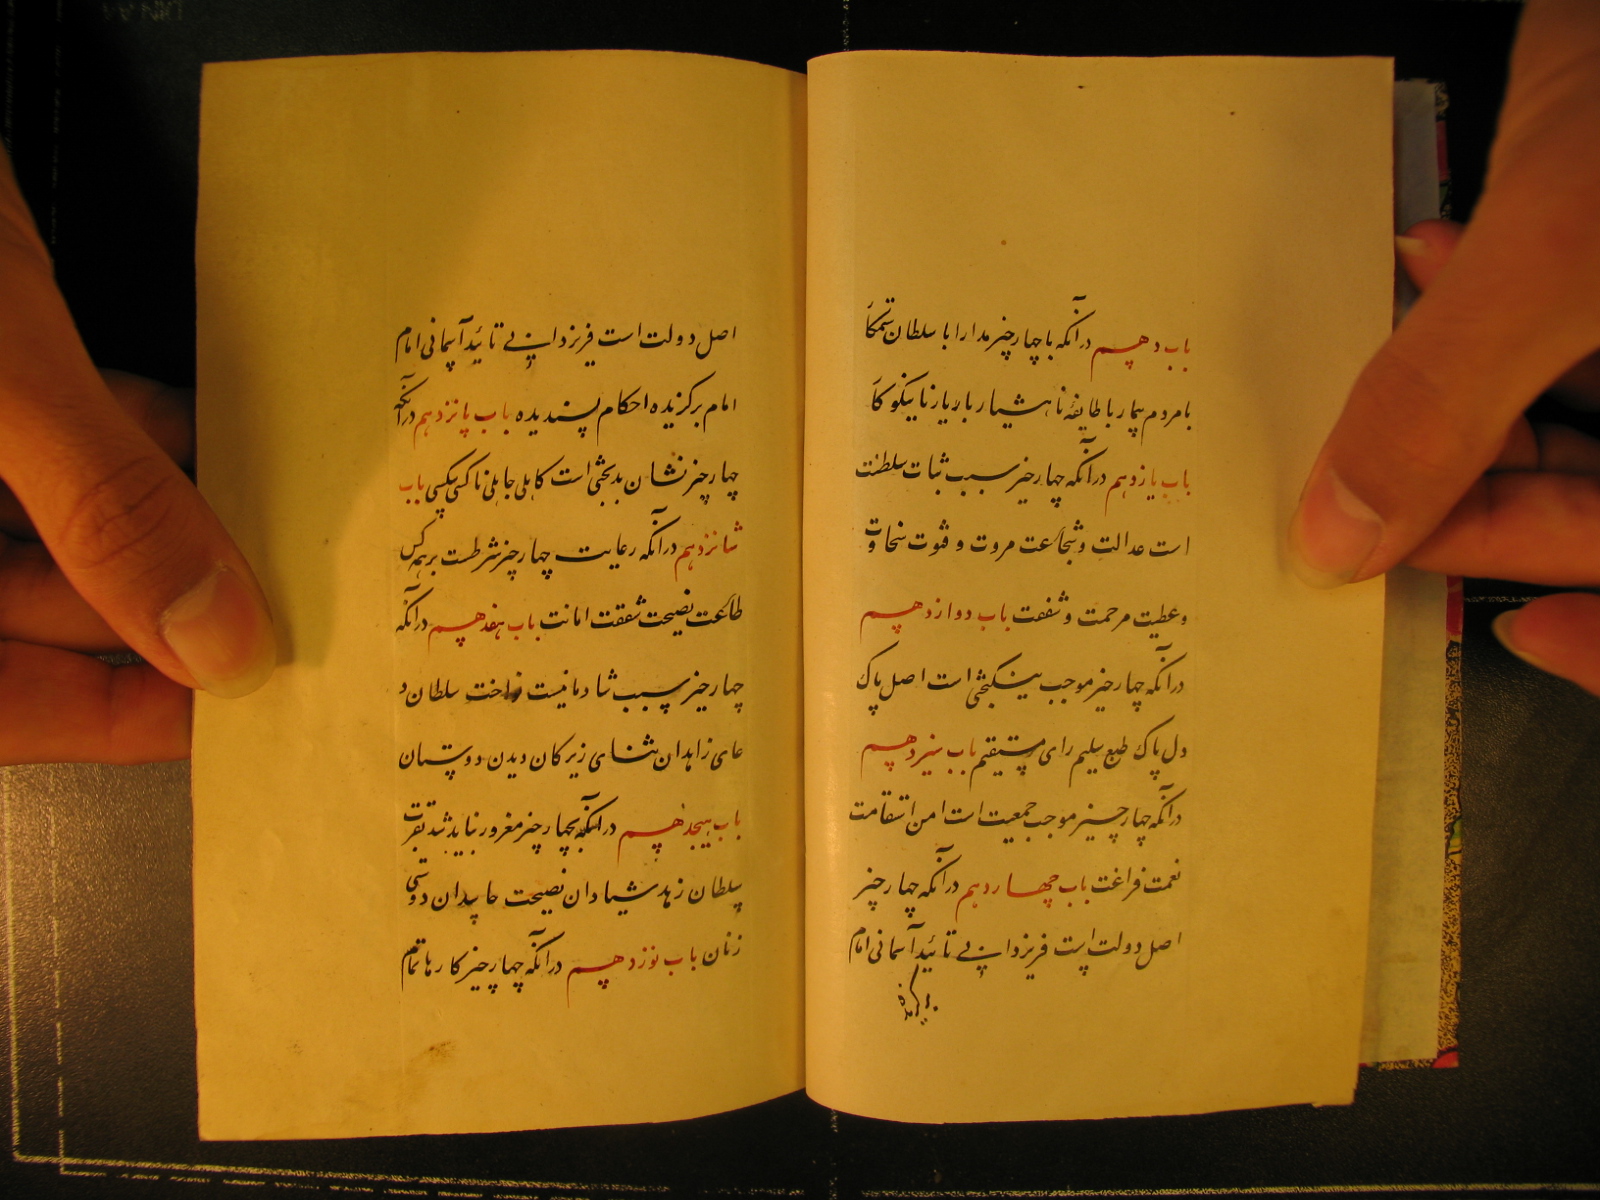 باب دهم در آنکه با چهار چیز مدارا با سلطان ستمکا
با مردم بیمار با طایفهٔ ناهشیار با یار نا نیکوکا
باب یازدهم در آنکه چهار چیز سبب ثبات سلطنت
است عدالت و شجاعت مروت و فتوت سخاوت
و عطیت مرحمت و شفقت باب دوازدهم
در آنکه چهار چیز موجب نیکبختی است اصل پاک
دل پاک طبع سلیم رای مستقیم باب سیزدهم
در آنکه چهار چیز موجب جمعیت است امن استقامت
نعمت فراغت باب چهاردهم در آنکه چهار چیز
اصل دولت است فر یزدانی تائید آسمانی امام
برگزیده
اصل دولت است فر یزدانی تائید آسمانی امام
امام برگزیده احکام پسندیده باب پانزدهم در آنکه
چهار چیز نشان بدبختی است کاهلی جاهلی ناکسی بیکسی باب
شانزدهم در آنکه رعایت چهار چیز شرطست بر همه کس
طاعت نصیحت شفقت امانت باب هفدهم در آنکه
چهار چیز سبب شادمانیست نواخت سلطان د
عای زاهدان ثنای زیرکان دیدن دوستان
باب هیجدهم در آنکه بچهار چیز مغرور نباید شد تقرب
سلطان زهد شیادان نصیحت حاسدان دوستی
زنان باب نوزدهم در آنکه چهار چیز کارها تمام